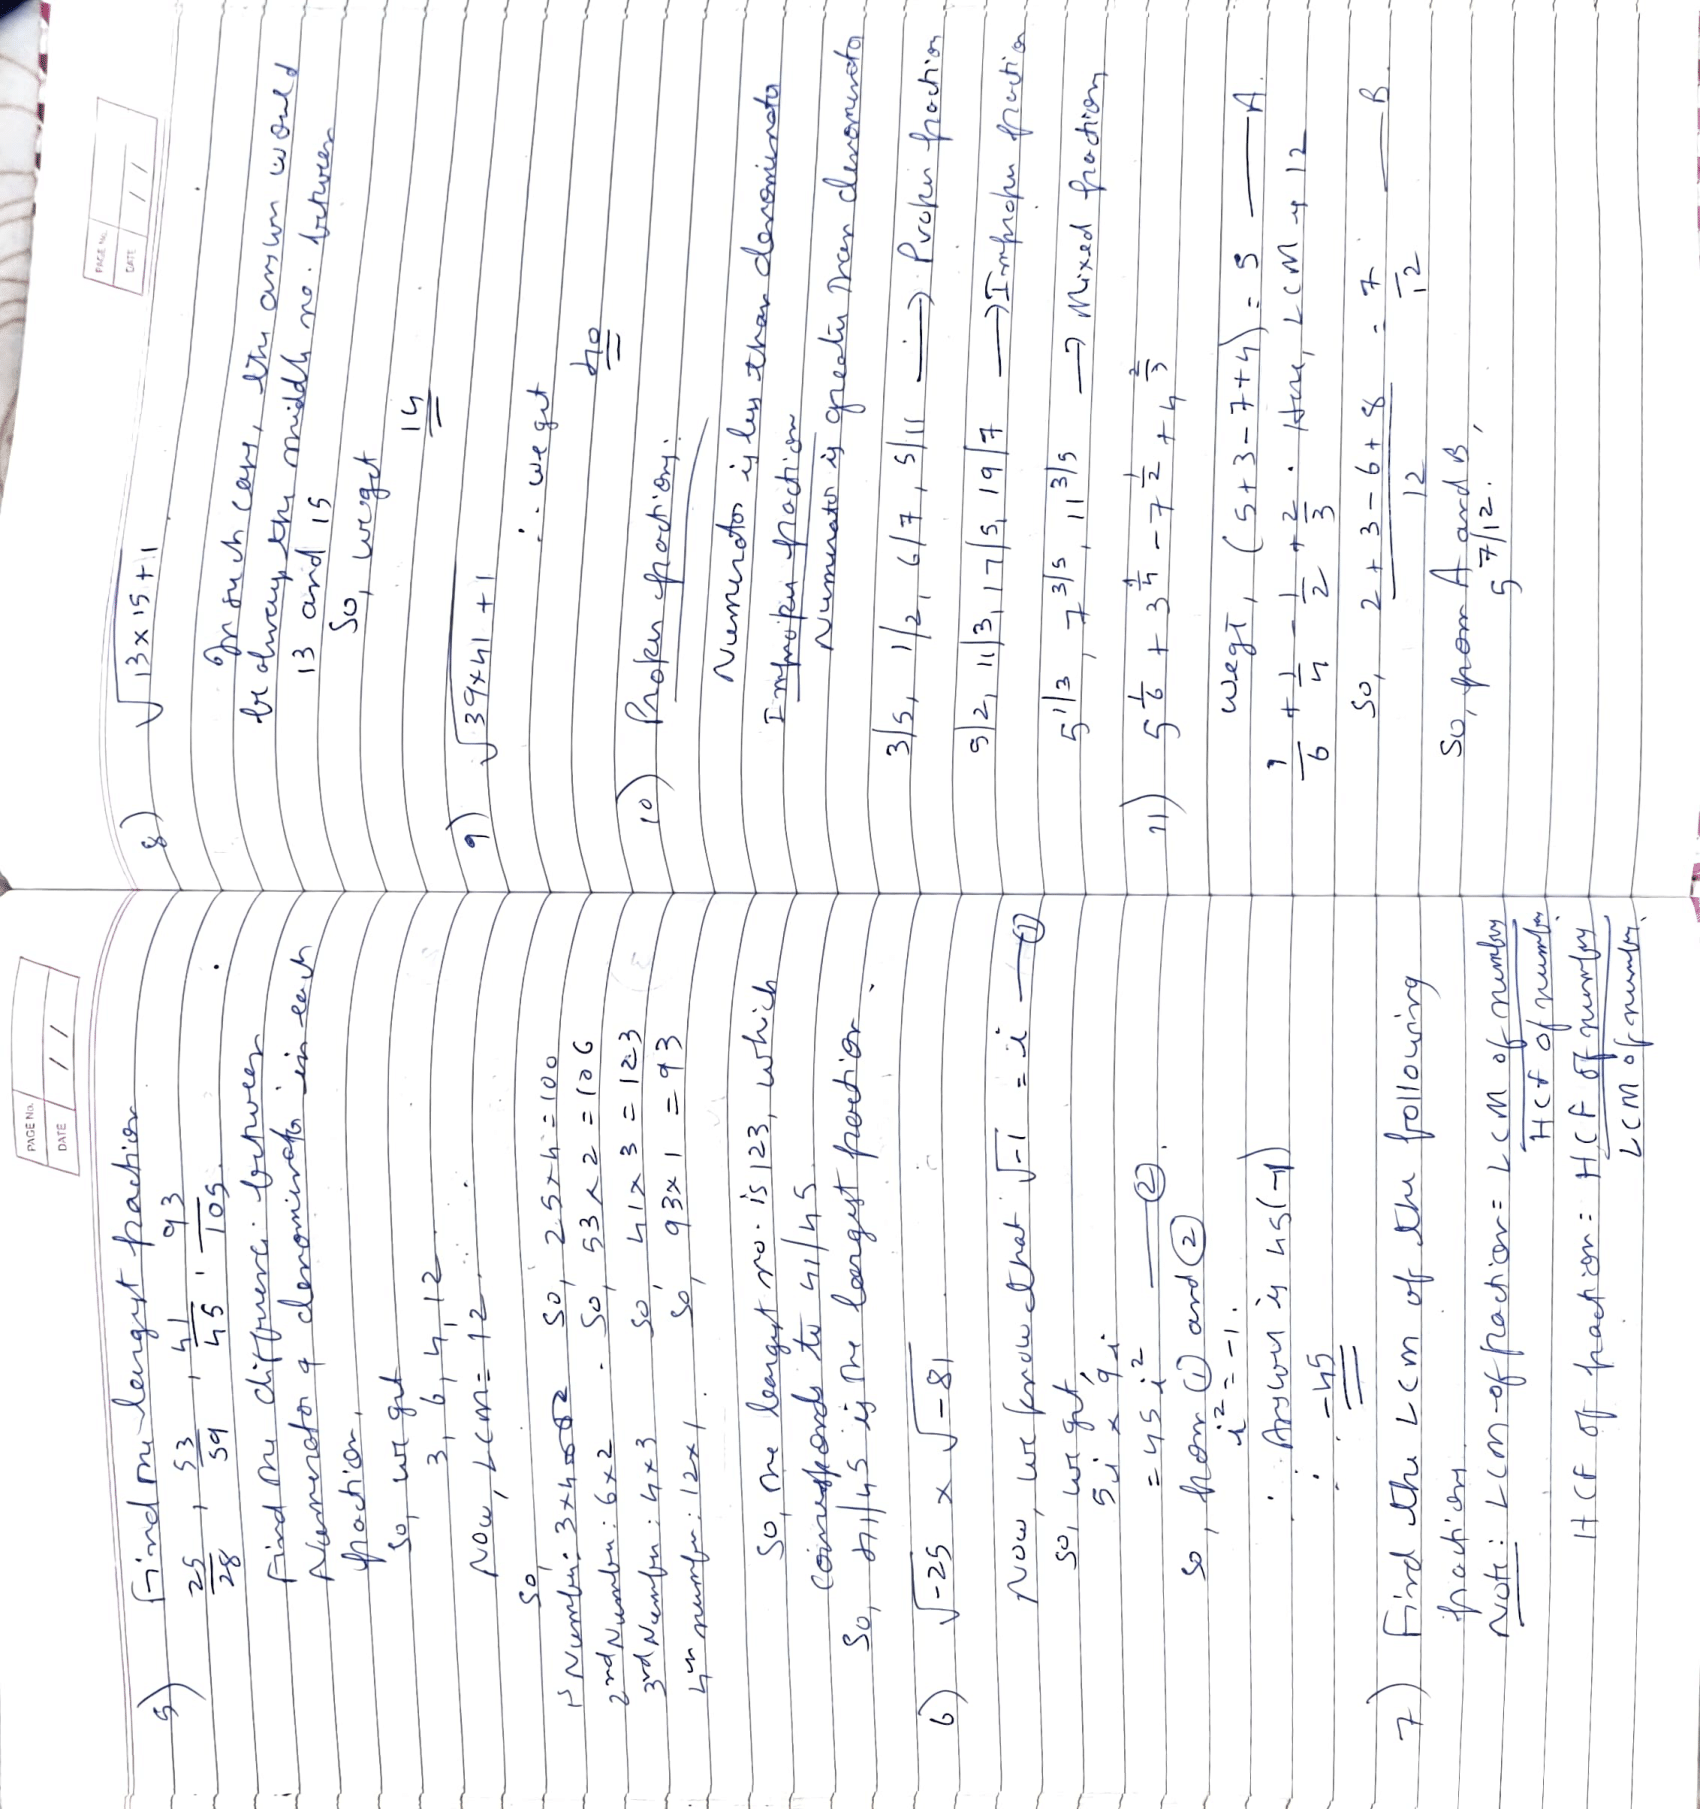 PAGE No.
DATE / /
5) Find the largest fraction
25/28 , 53/59 , 41/45 , 93/105.
Find the difference between
Numerator & denominator in each
fraction.
So, we get
3, 6, 4, 12
Now, LCM = 12
So,
1st Number: 3×4 So, 25×4 = 100
2nd Number: 6×2 . So, 53×2 = 106
3rd Number: 4×3 So, 41×3 = 123
4th number: 12×1 . So, 93×1 = 93
So, the largest no. is 123, which
corresponds to 41/45
So, 41/45 is the largest fraction.
6) √-25 × √-81
Now, we know that √-1 = i — ①
So, we get,
5i × 9i
= 45i² — ②.
So, from ① and ②
i² = -1.
∴ Answer is 45(-1)
∴ -45
7) Find the LCM of the following
fraction.
Note: LCM of fraction = LCM of number
HCF of number
HCF of fraction = HCF of number
LCM of number.
PAGE No.
DATE / /
8) √13×15+1
In such case, the answer would
be always the middle no. between
13 and 15
So, we get
14
9) √39×41+1
∴ we get
40
10) Proper fractions:
Numerator is less than denominator
Improper fraction
Numerator is greater than denominator
3/5, 1/2, 6/7, 5/11 → Proper fraction
9/2, 11/3, 17/5, 19/7 → Improper fraction
5 1/3, 7 3/5, 11 3/5 → Mixed fraction
11) 5 1/6 + 3 1/4 - 7 1/2 + 4 2/3
We get, (5+3-7+4) = 5 — A.
1/6 + 1/4 - 1/2 + 2/3 . Here, LCM is 12
So, 2+3-6+8 / 12 = 7/12 — B.
So, from A and B
5 7/12.